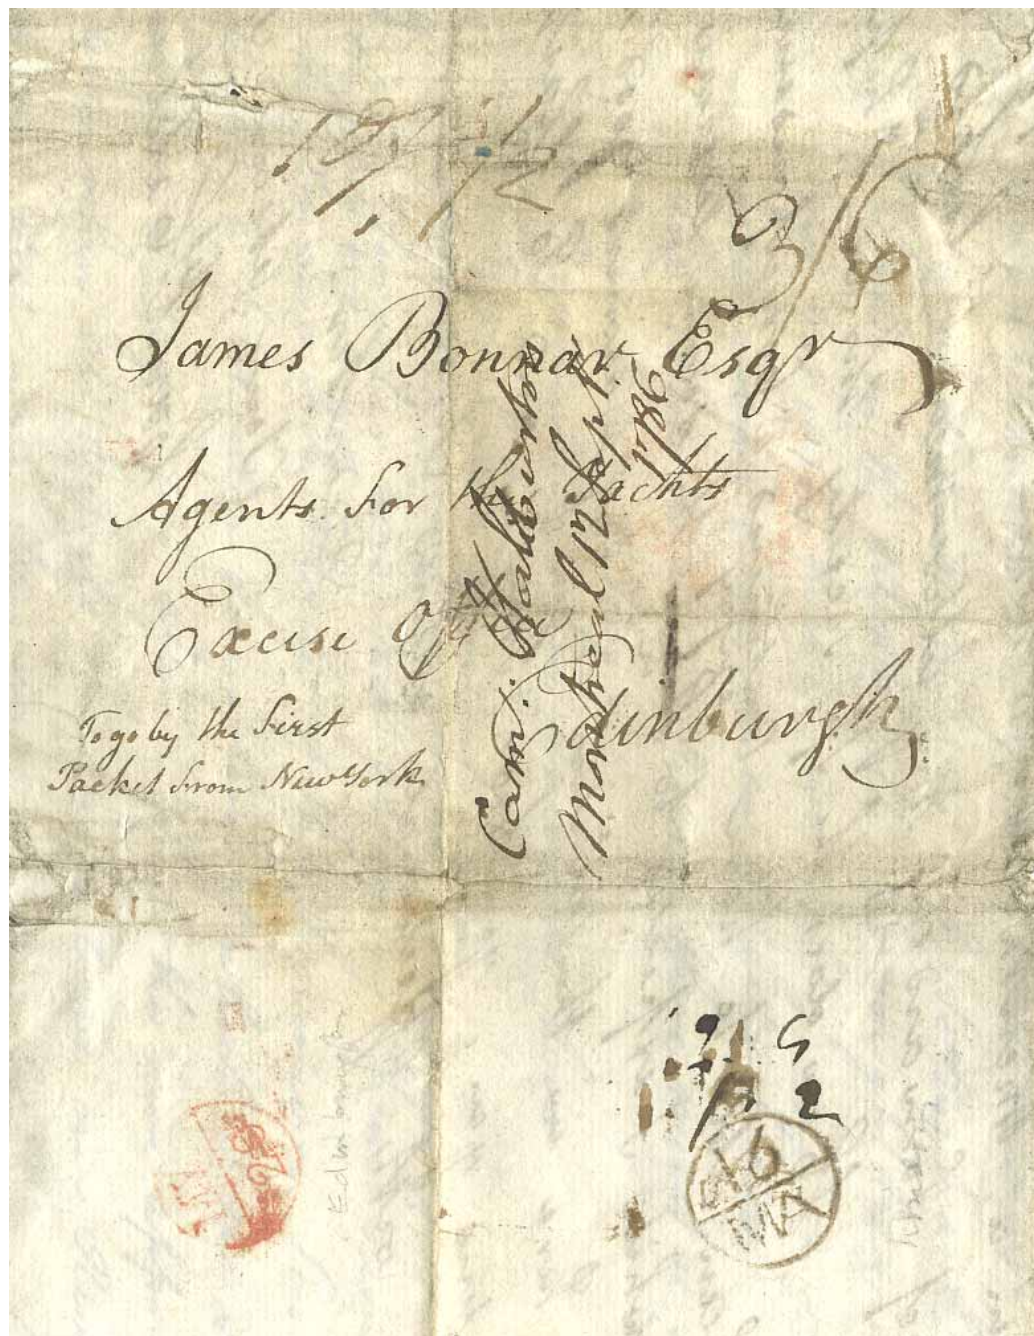 3/6
James Bonnar Esqr
Agents for the Yachts
Excise Office
Edinburgh
To go by the First
Packet from New York
Montreal 12 Sept.
1786
Edinburgh
16
MA